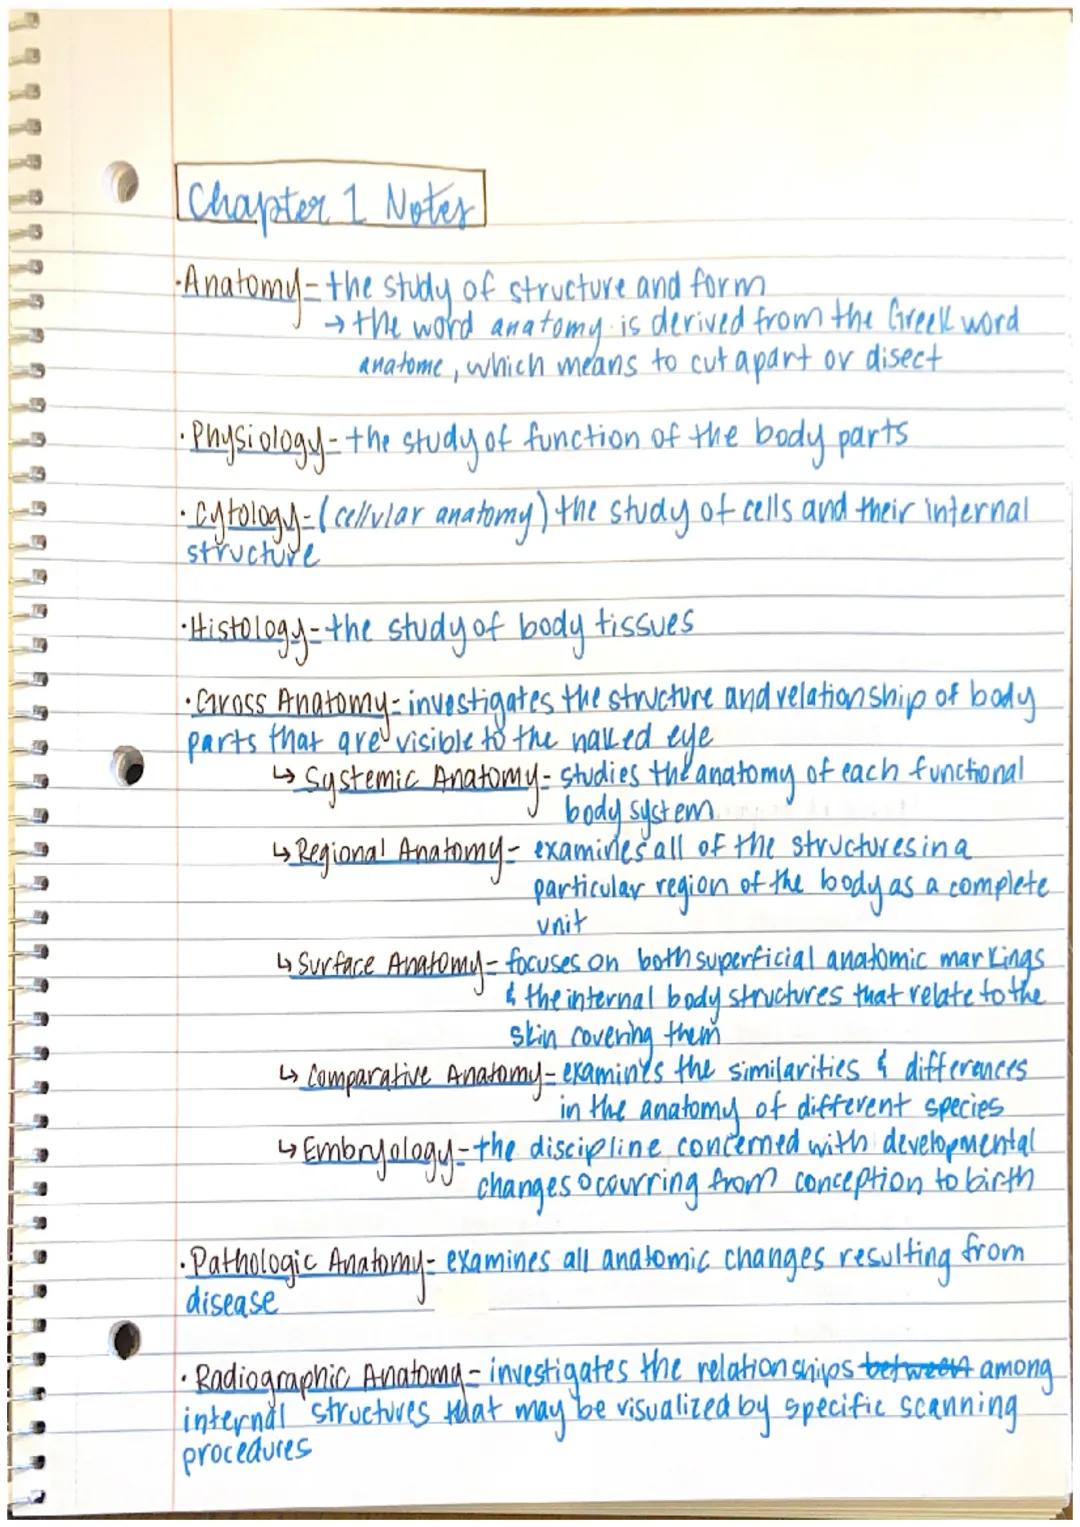 Chapter 1 Notes
·Anatomy- the study of structure and form
→ the word anatomy is derived from the Greek word
anatome, which means to cut apart or disect
·Physiology- the study of function of the body parts
·Cytology-(cellular anatomy) the study of cells and their internal
structure
·Histology- the study of body tissues
·Gross Anatomy- investigates the structure and relationship of body
parts that are visible to the naked eye
↳ Systemic Anatomy- studies the anatomy of each functional
body system
↳ Regional Anatomy- examines all of the structures in a
particular region of the body as a complete
unit
↳ Surface Anatomy- focuses on both superficial anatomic markings
& the internal body structures that relate to the
skin covering them
↳ Comparative Anatomy- examines the similarities & differences
in the anatomy of different species
↳ Embryology- the discipline concerned with developmental
changes ocourring from conception to birth
·Pathologic Anatomy- examines all anatomic changes resulting from
disease
·Radiographic Anatomy- investigates the relationships between among
internal structures that may be visualized by specific scanning
procedures